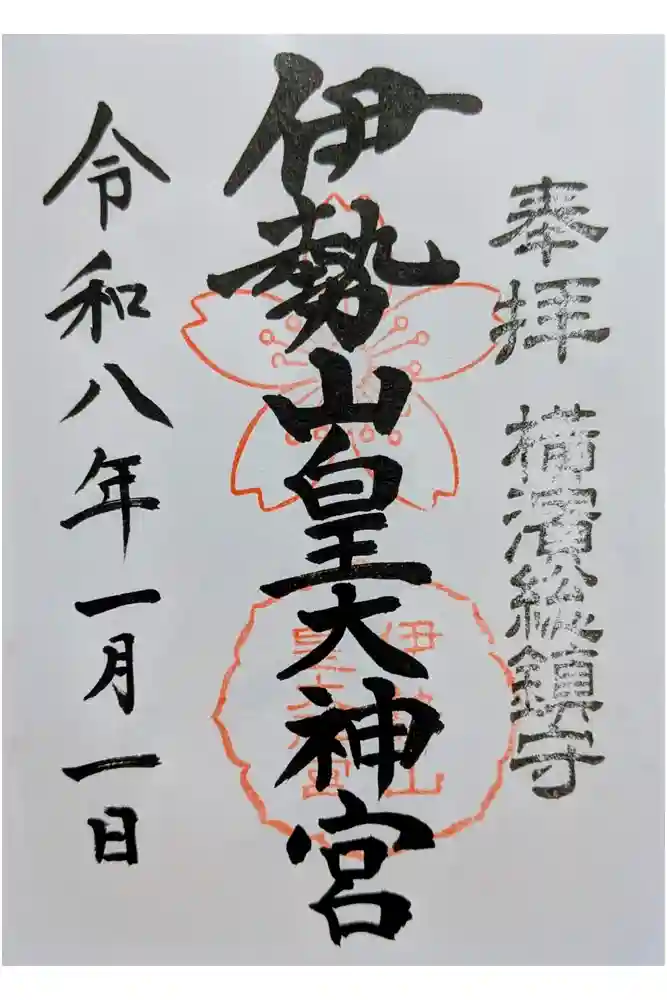 奉拝
横濱総鎮守
伊勢山皇大神宮
伊勢山
皇大神宮
令和八年一月一日